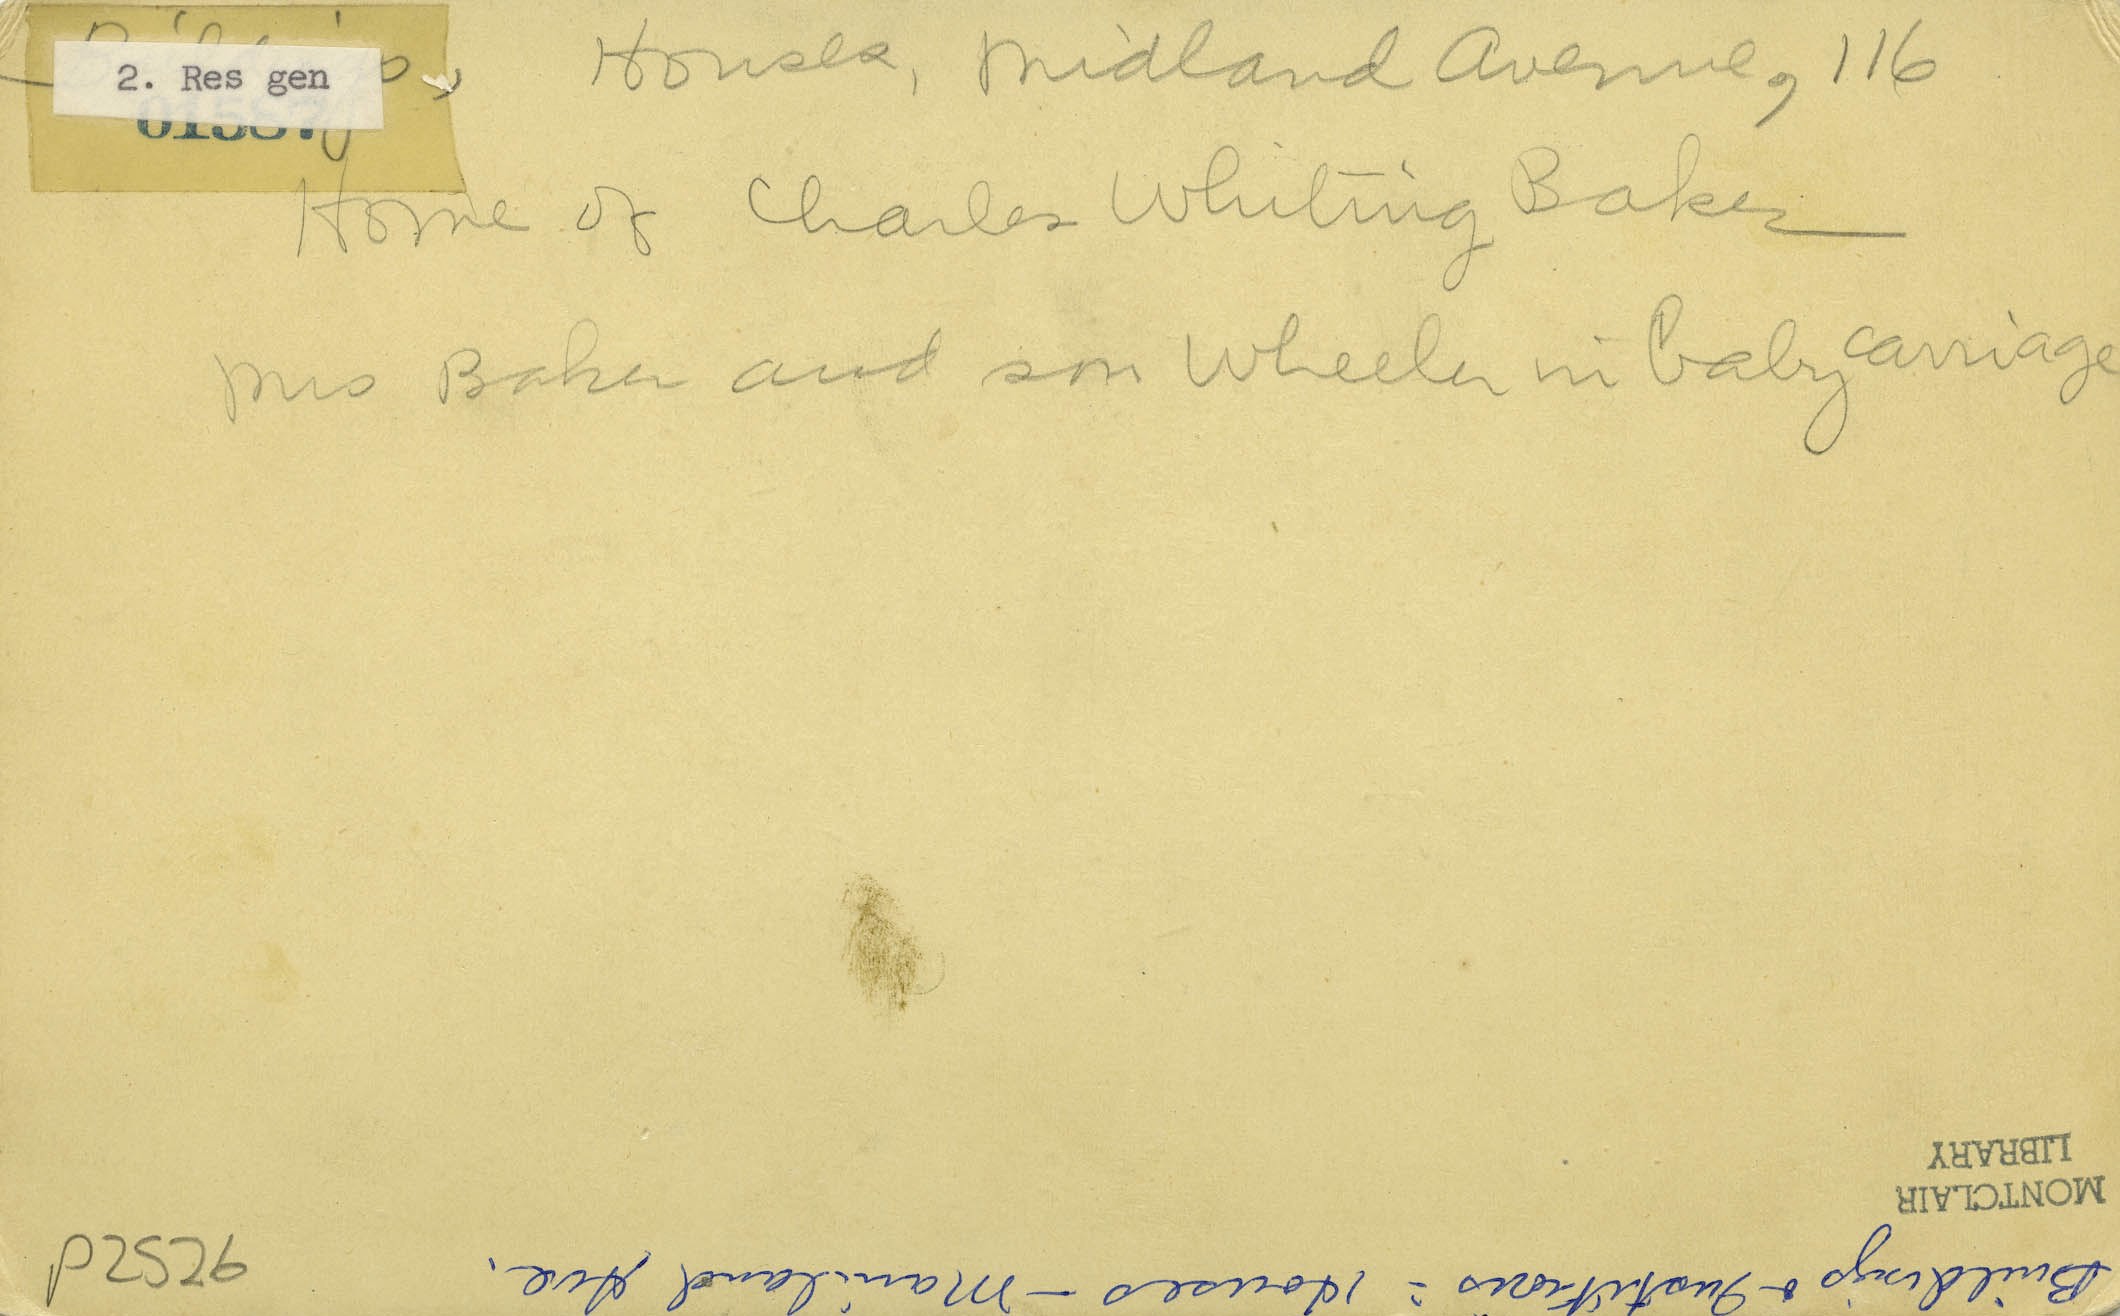 2. Res gen
Houses, Midland Avenue, 116
Home of Charles Whiting Baker
Mrs Baker and son Wheeler in baby carriage
P2526
MONTCLAIR
LIBRARY
Buildings & Institutions: Houses - Ave.